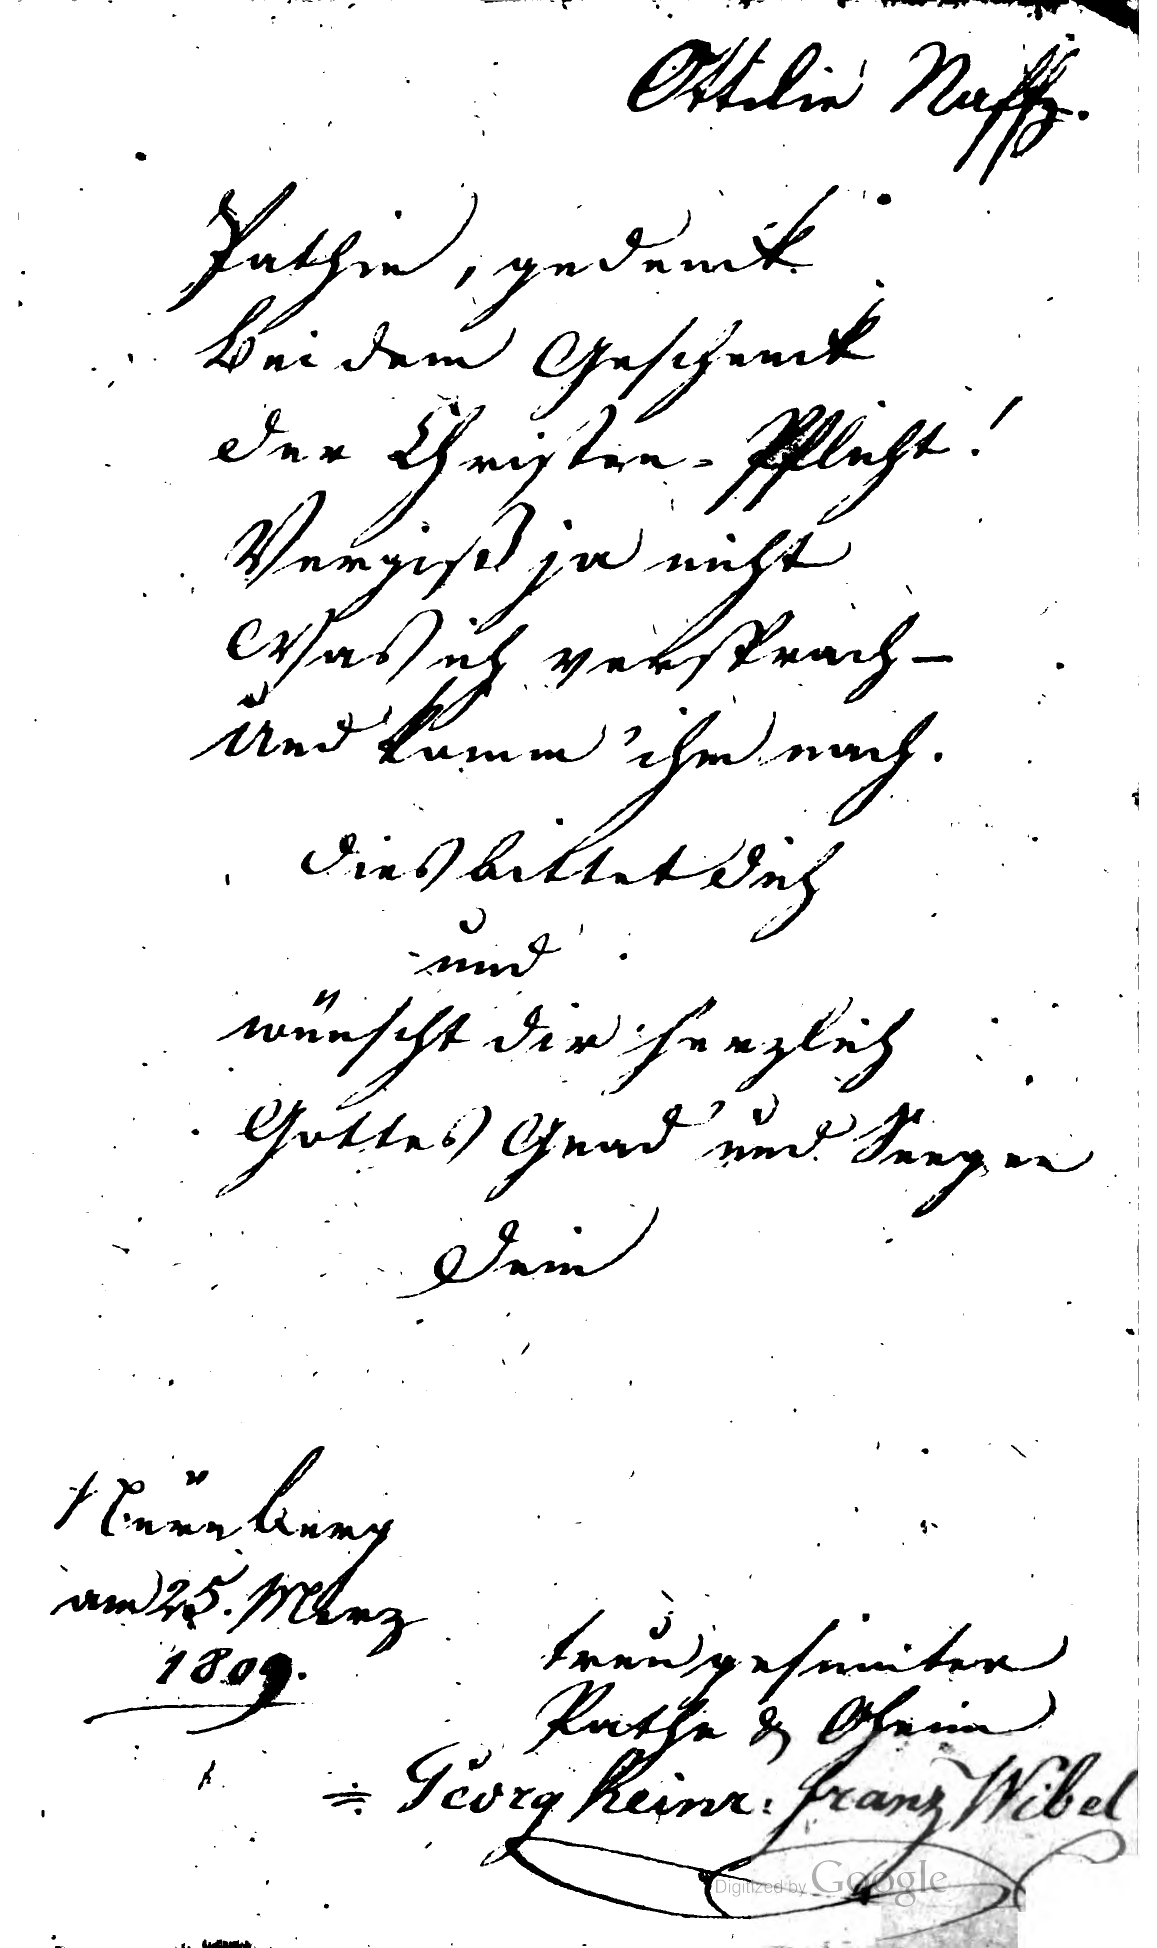 Ottilie
Pathin, gedenck
Bei dem Geschenck
der Christen-Pflicht!
Vergiß ja nicht
Was ich versprach—
Und komm ihm nach.
Dies bittet dich
und
wünscht dir herzlich
Gottes Gnad und Seegen
Dein
Nürnberg
am 25. Merz
1809.
treu gesinnter
Pathe & Oheim
= Georg Heinr: Franz Wibel
Digitized by Google